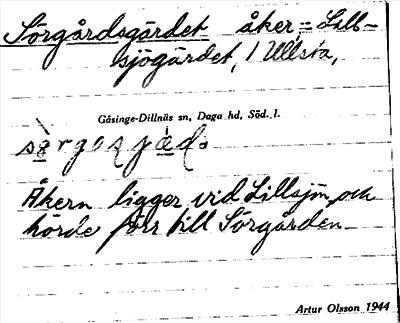 Sörgårdsgärdet åker = Lill-
sjögärdet, 1 Ullsta,
Gåsinge-Dillnäs sn, Daga hd, Söd. l.
Åkern ligger vid Lillsjön och
hörde förr till Sörgården
Artur Olsson 1944